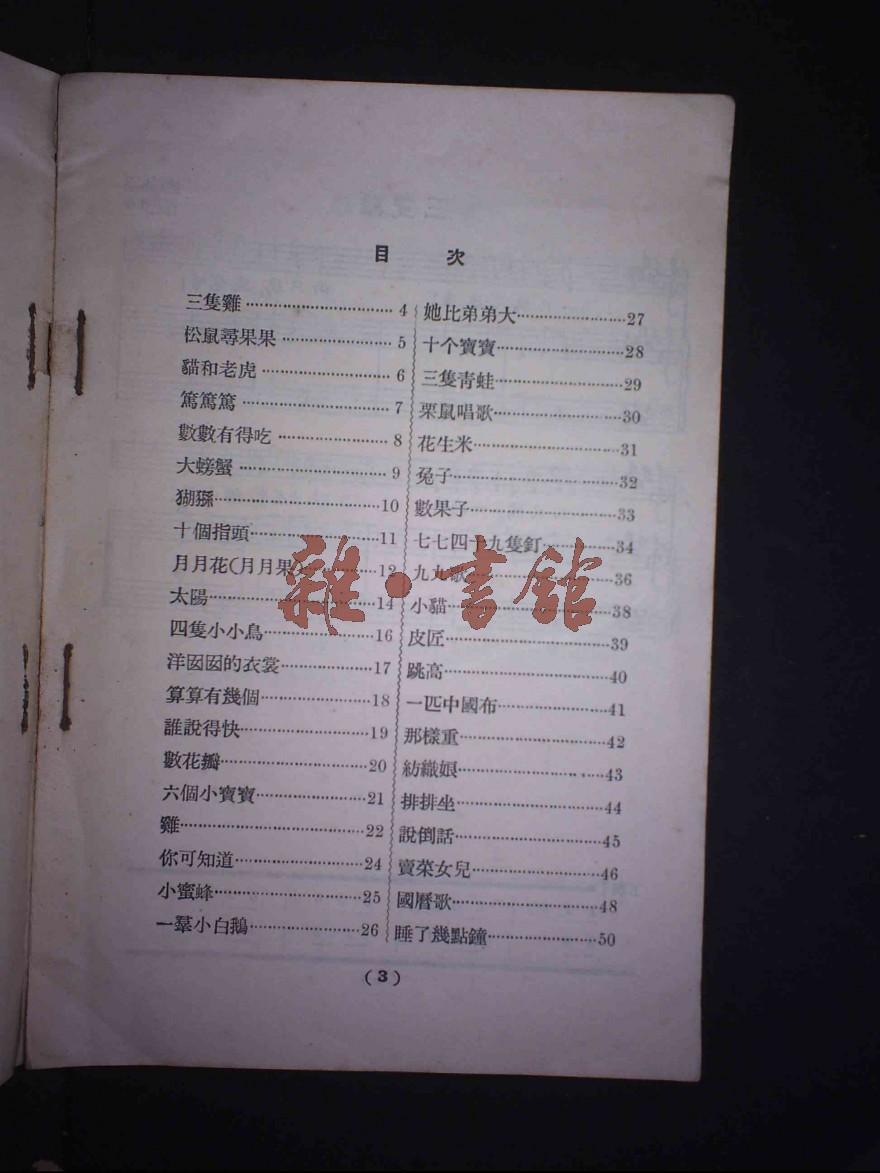 目 次
三隻雞 4
松鼠尋果果 5
貓和老虎 6
篤篤篤 7
數數有得吃 8
大螃蟹 9
猢猻 10
十個指頭 11
月月花(月月果) 12
太陽 14
四隻小小鳥 16
洋囡囡的衣裳 17
算算有幾個 18
誰說得快 19
數花瓣 20
六個小寶寶 21
雞 22
你可知道 24
小蜜蜂 25
一羣小白鵝 26
她比弟弟大 27
十个寶寶 28
三隻青蛙 29
栗鼠唱歌 30
花生米 31
兔子 32
數果子 33
七七四十九隻釘 34
九九歌 36
小貓 38
皮匠 39
跳高 40
一匹中國布 41
那樣重 42
紡織娘 43
排排坐 44
說倒話 45
賣菜女兒 46
國曆歌 48
睡了幾點鐘 50
(3)
雜·書館